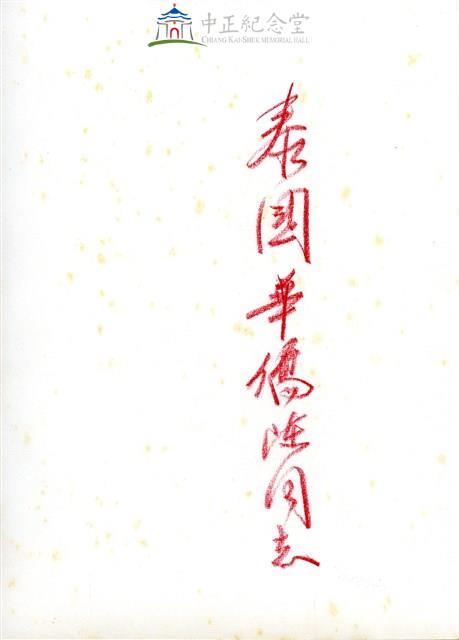 中正紀念堂
CHIANG KAI-SHEK MEMORIAL HALL
泰國華僑陳同志